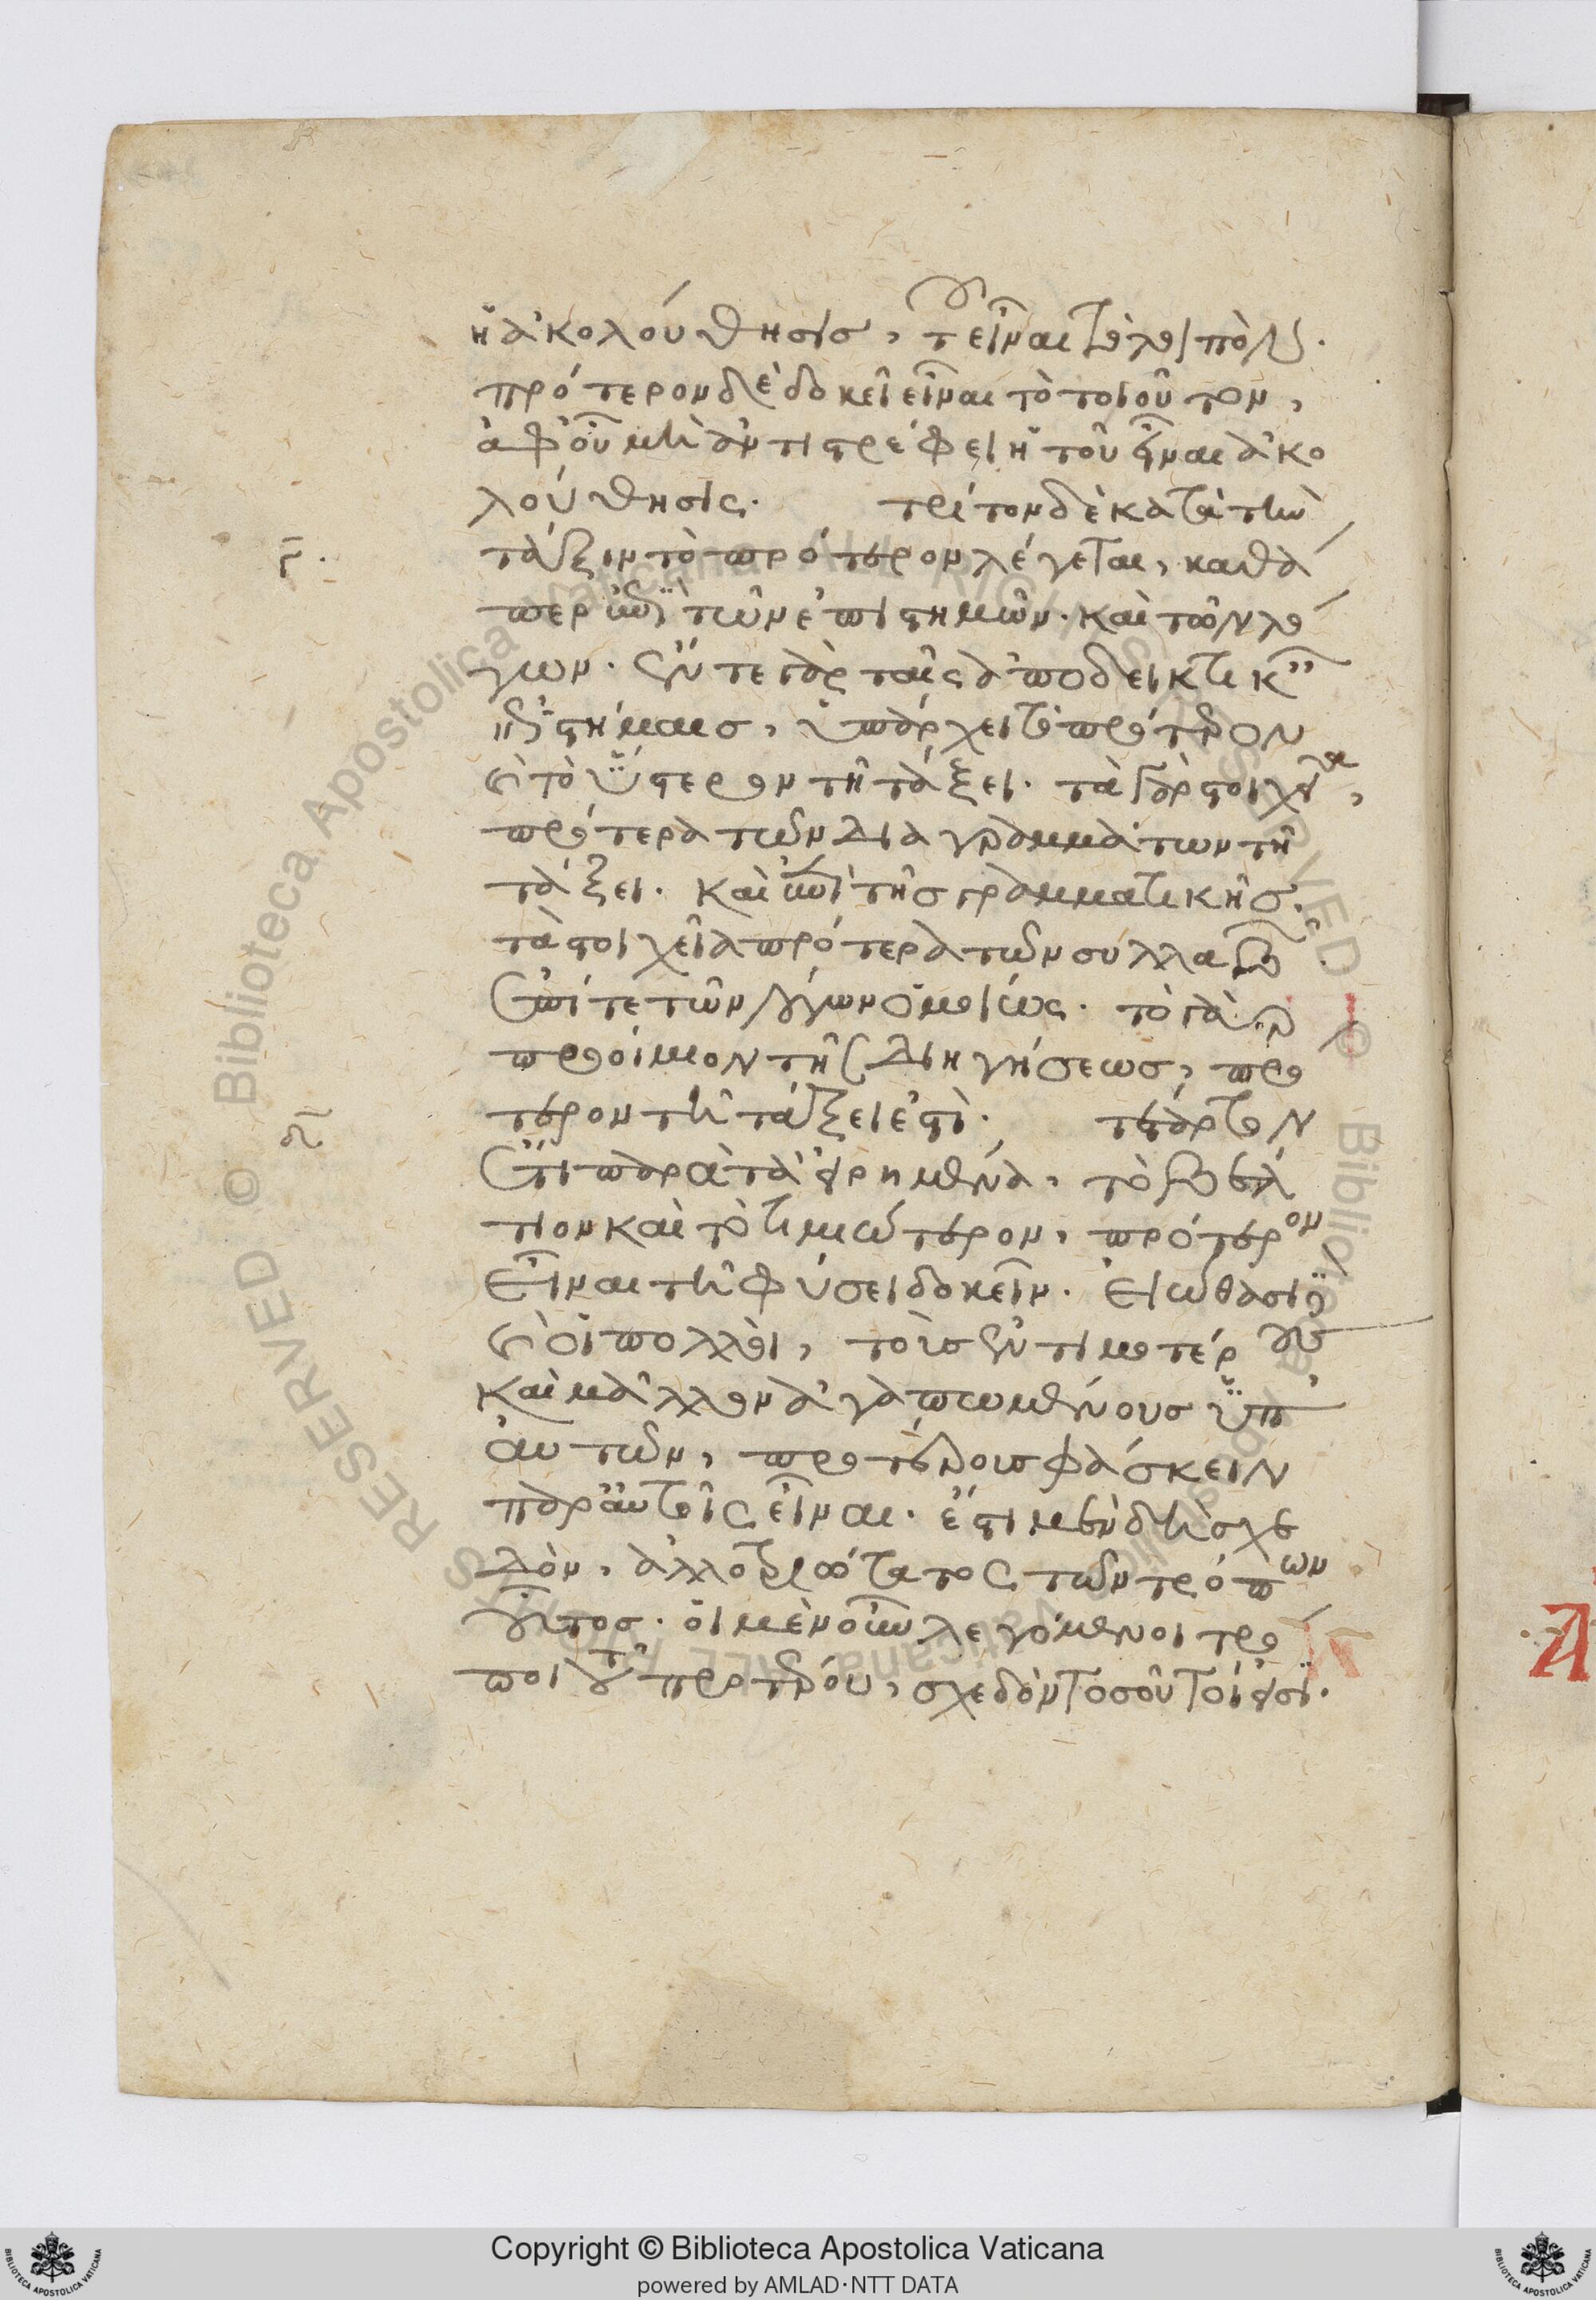 ἡ ἀκολούθησις, τοῦ εἶναι τὸ λοιπόν.
πρότερον δὲ δοκεῖ εἶναι τὸ τοιοῦτον,
ἀφ' οὗ μὴ ἀντιστρέφει ἡ τοῦ εἶναι ἀκο
λούθησις. τρίτον δὲ κατὰ τὴν
γ.
τάξιν τὸ πρότερον λέγεται, καθά
περ ἐπὶ τῶν ἐπιστημῶν. καὶ τῶν λό
γων. ἔν τε γὰρ ταῖς ἀποδεικτικαῖς
ἐπιστήμαις, ὑπάρχει τὸ πρότερον
καὶ τὸ ὕστερον τῇ τάξει. τὰ γὰρ στοιχεῖα,
πρότερα τῶν διαγραμμάτων τῇ
τάξει. καὶ ἐπὶ τῆς γραμματικῆς.
τὰ στοιχεῖα πρότερα τῶν συλλαβῶν.
ἐπί τε τῶν λόγων ὁμοίως. τὸ γὰρ
προοίμιον τῆς διηγήσεως, πρό
τερον τῇ τάξει ἐστί. τέταρτον
δ
ἔτι παρὰ τὰ εἰρημένα, τὸ βέλ
τιον καὶ τὸ τιμιώτερον, πρότερον
εἶναι τῇ φύσει δοκεῖν. εἰώθασι δὲ
καὶ οἱ πολλοὶ, τοὺς ἐντιμοτέρους
καὶ μᾶλλον ἀγαπωμένους ὑπ'
αὐτῶν, προτέρους φάσκειν
παρ' αὐτοῖς εἶναι. ἔστι μὲν δὴ σχε
δὸν, ἀλλοτριώτατος τῶν τρόπων
οὗτος. οἱ μὲν οὖν λεγόμενοι τρό
ποι τοῦ προτέρου, σχεδὸν τοσοῦτοί εἰσι.
Copyright © Biblioteca Apostolica Vaticana
powered by AMLAD·NTT DATA